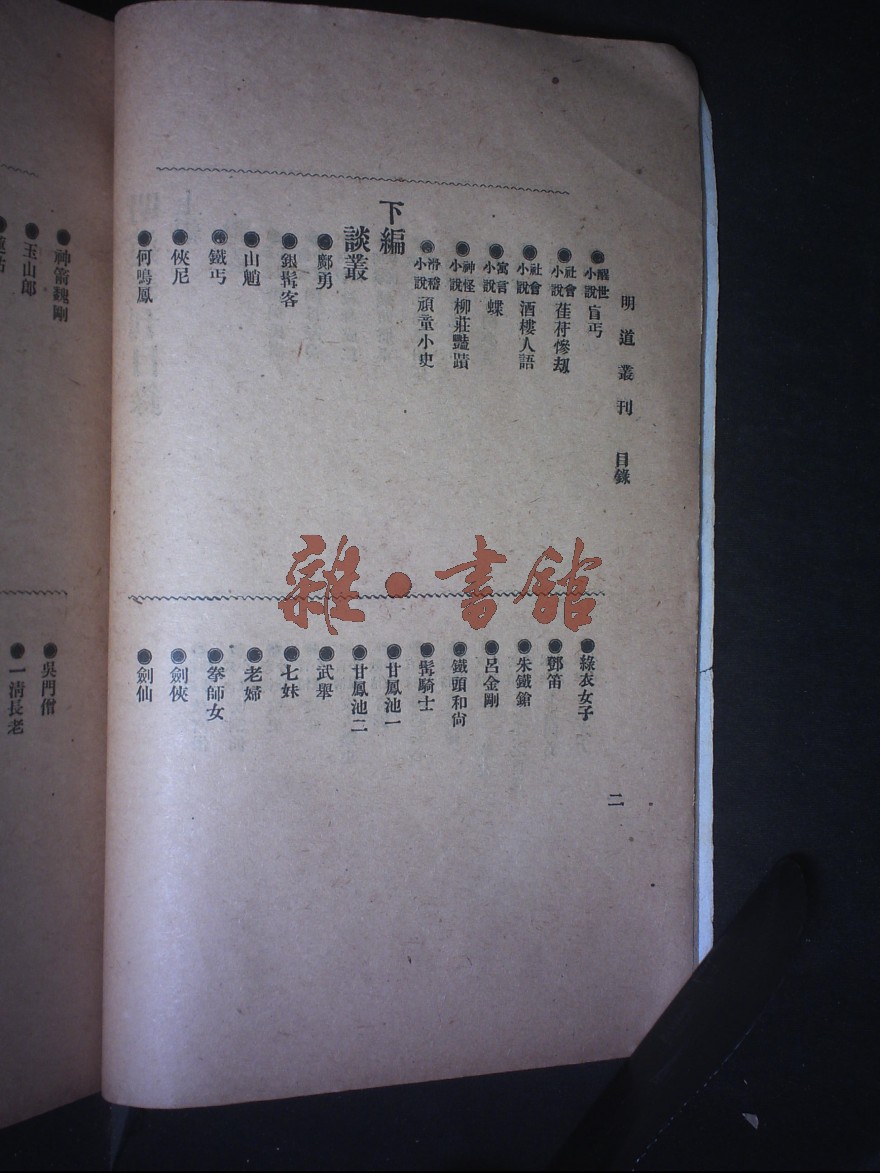 明道叢刊 目錄
二
●醒世小說 盲丐
●社會小說 萑苻慘劫
●社會小說 酒樓人語
●寓言小說 蝶
●神怪小說 柳莊豔蹟
●滑稽小說 頑童小史
下編
談叢
●鄭勇
●銀髯客
●山魈
●鐵丐
●俠尼
●何鳴鳳
●綠衣女子
●鄧笛
●朱鐵鎗
●呂金剛
●鐵頭和尙
●髯騎士
●甘鳳池一
●甘鳳池二
●武舉
●七妹
●老婦
●拳師女
●劍俠
●劍仙
●神箭魏剛
●玉山郎
●吳門僧
●一淸長老
雜·書館